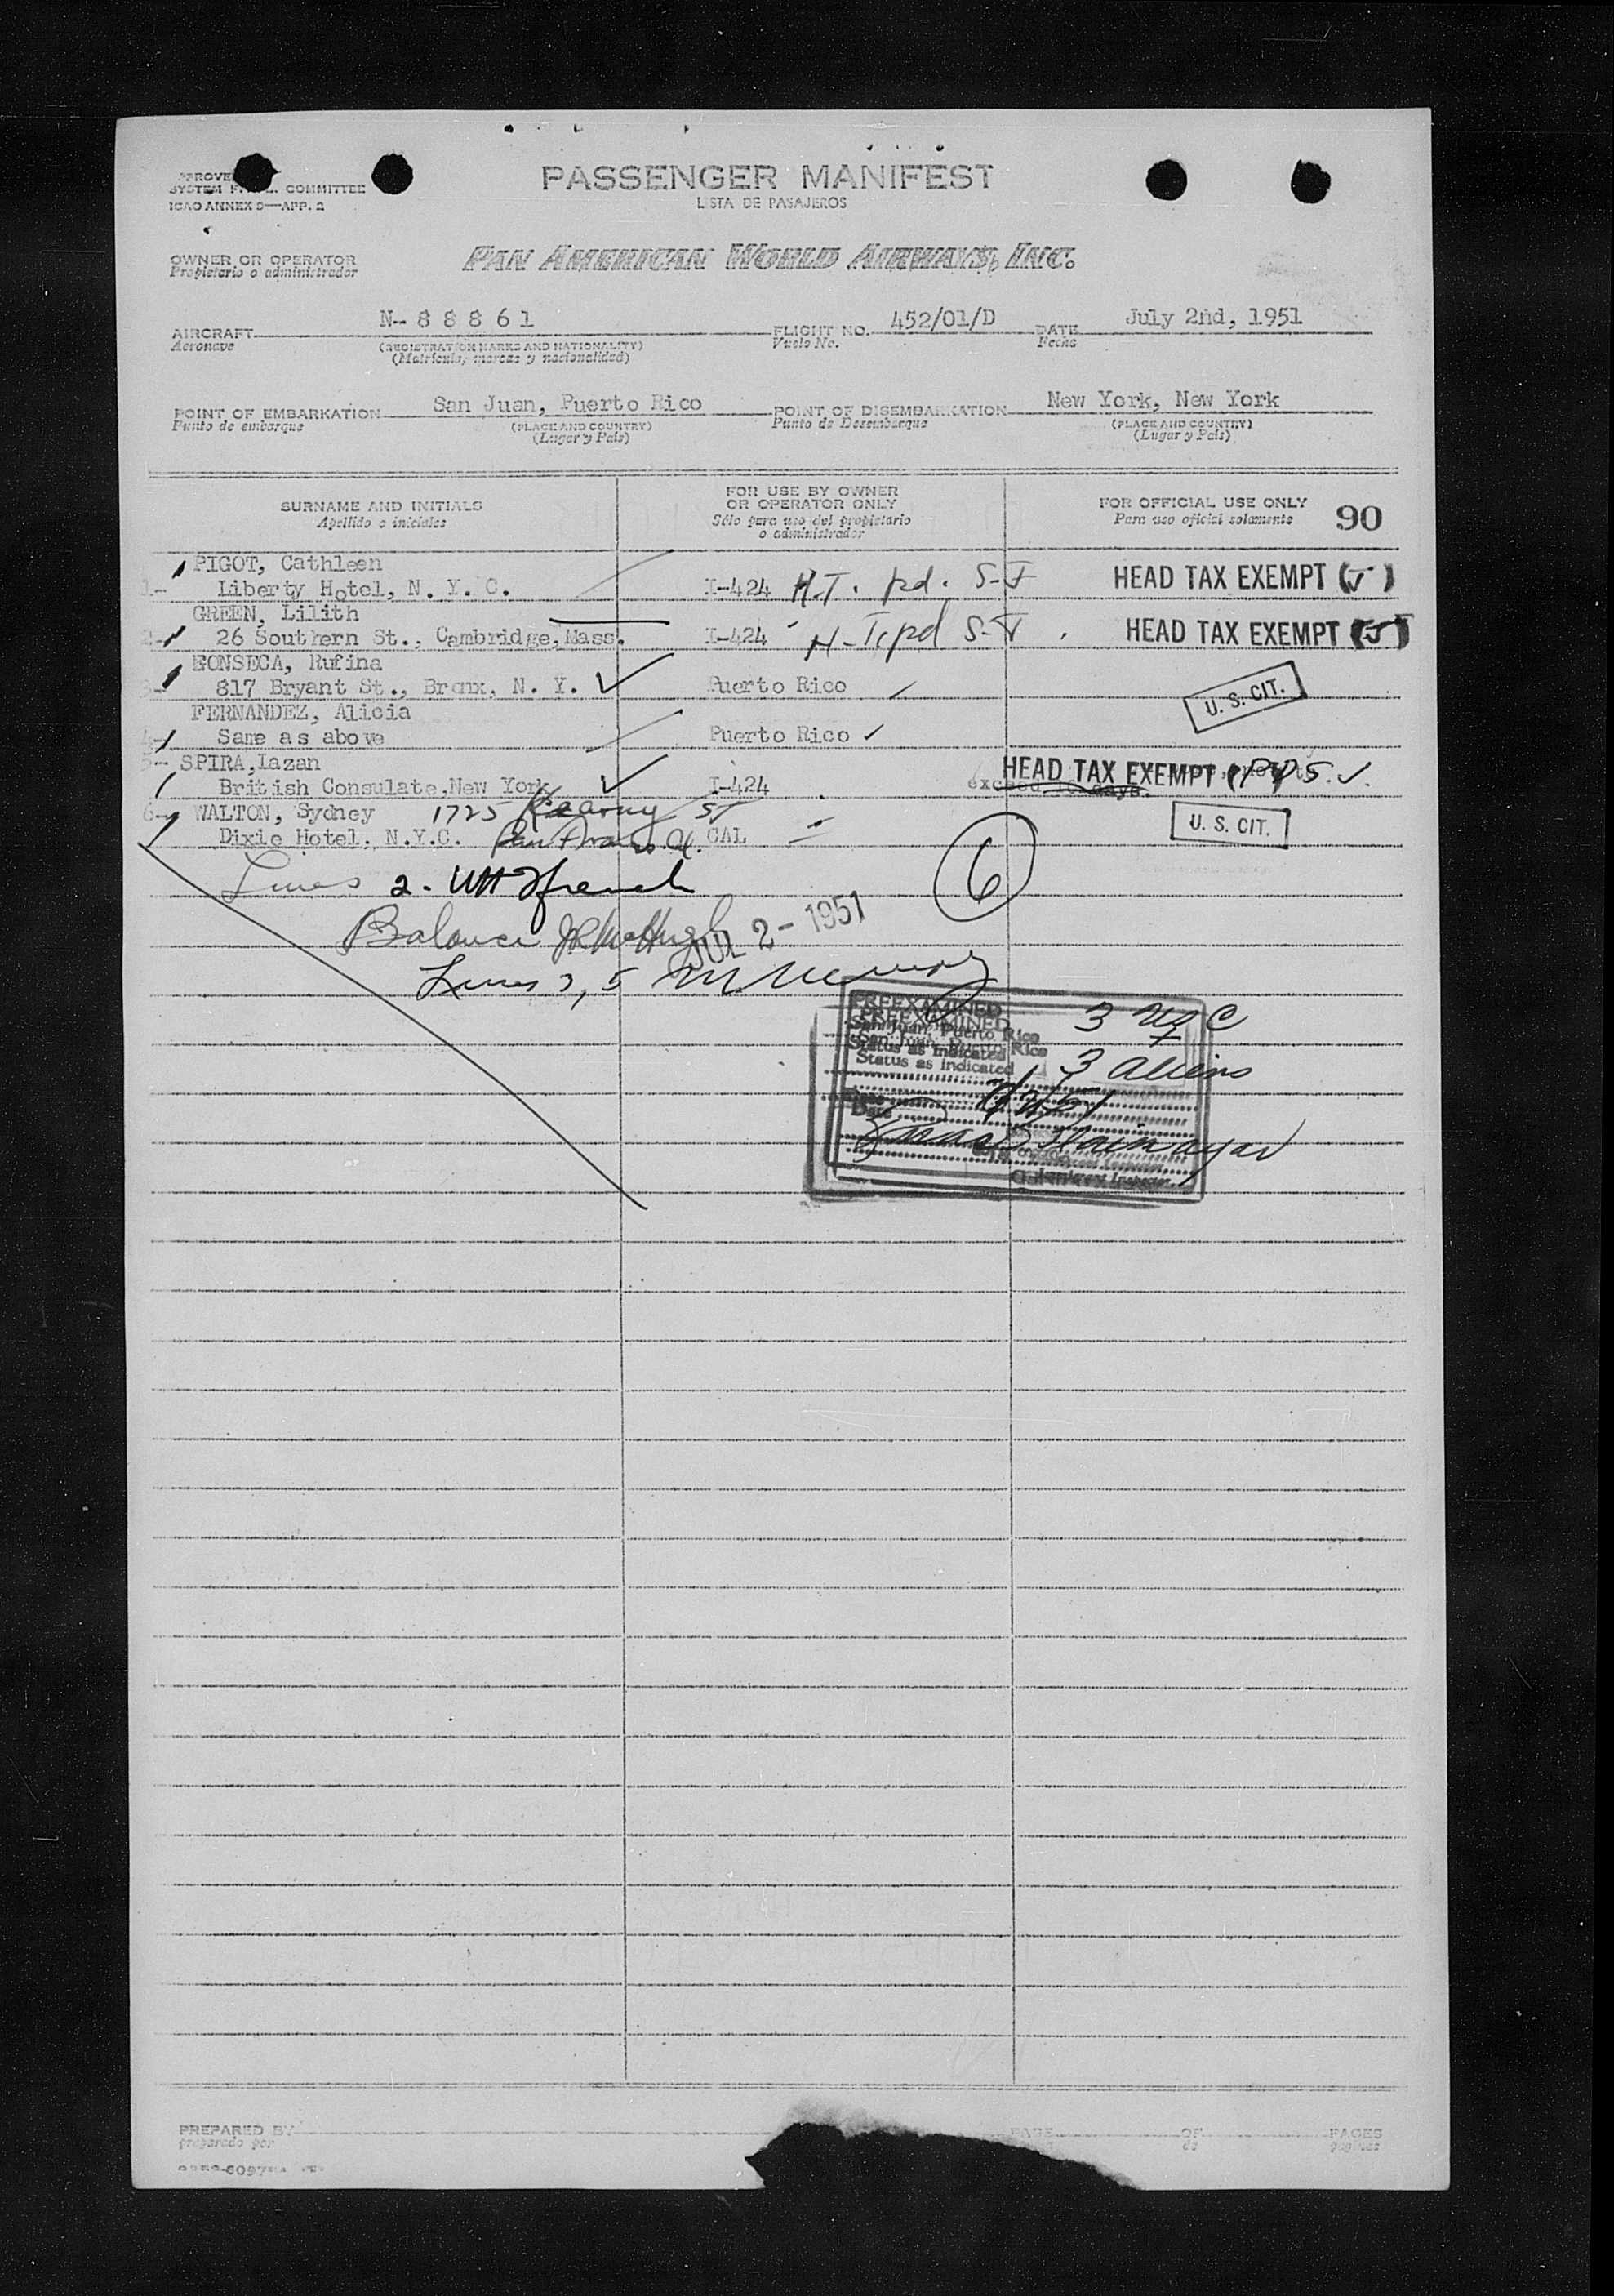 PASSENGER MANIFEST
LISTA DE PASAJEROS
COMMITTEE
ICAO ANNEX 9—APP. 2
OWNER OR OPERATOR
Propietario o administrador
PAN AMERICAN WORLD AIRWAYS, INC.
AIRCRAFT N-88861 FLIGHT NO. 452/01/D DATE July 2nd, 1951
Aeronave (REGISTRATION MARKS AND NATIONALITY) Vuelo No. Fecha
(Matricula, marcas y nacionalidad)
POINT OF EMBARKATION San Juan, Puerto Rico POINT OF DISEMBARKATION New York, New York
Punto de embarque (PLACE AND COUNTRY) Punto de Desembarque (PLACE AND COUNTRY)
(Lugar y País) (Lugar y País)
SURNAME AND INITIALS FOR USE BY OWNER OR OPERATOR ONLY FOR OFFICIAL USE ONLY 90
Apellido e iniciales Sólo para uso del propietario o administrador Para uso oficial solamente
PIGOT, Cathleen
1- Liberty Hotel, N. Y. C. I-424 H.T. pd. S-J HEAD TAX EXEMPT (J)
GREEN, Lilith
2- 26 Southern St., Cambridge, Mass. I-424 H-T. pd S-J HEAD TAX EXEMPT (J)
FONSECA, Rufina
3- 817 Bryant St., Bronx, N. Y. Puerto Rico U. S. CIT.
FERNANDEZ, Alicia
4- Same as above Puerto Rico
5- SPIRA, Lazan HEAD TAX EXEMPT
British Consulate, New York I-424 exceed days.
6- WALTON, Sydney 1725 Kearny ST
Dixie Hotel, N.Y.C. CAL U. S. CIT.
Lines 2. 6
Balance JR McHugh JUL 2 - 1951
Lines 3, 5
PREEXAMINED
San Juan, Puerto Rico 3 USC
Status as indicated 3 Aliens
Date
PREPARED BY PAGE OF PAGES
preparado por de paginas